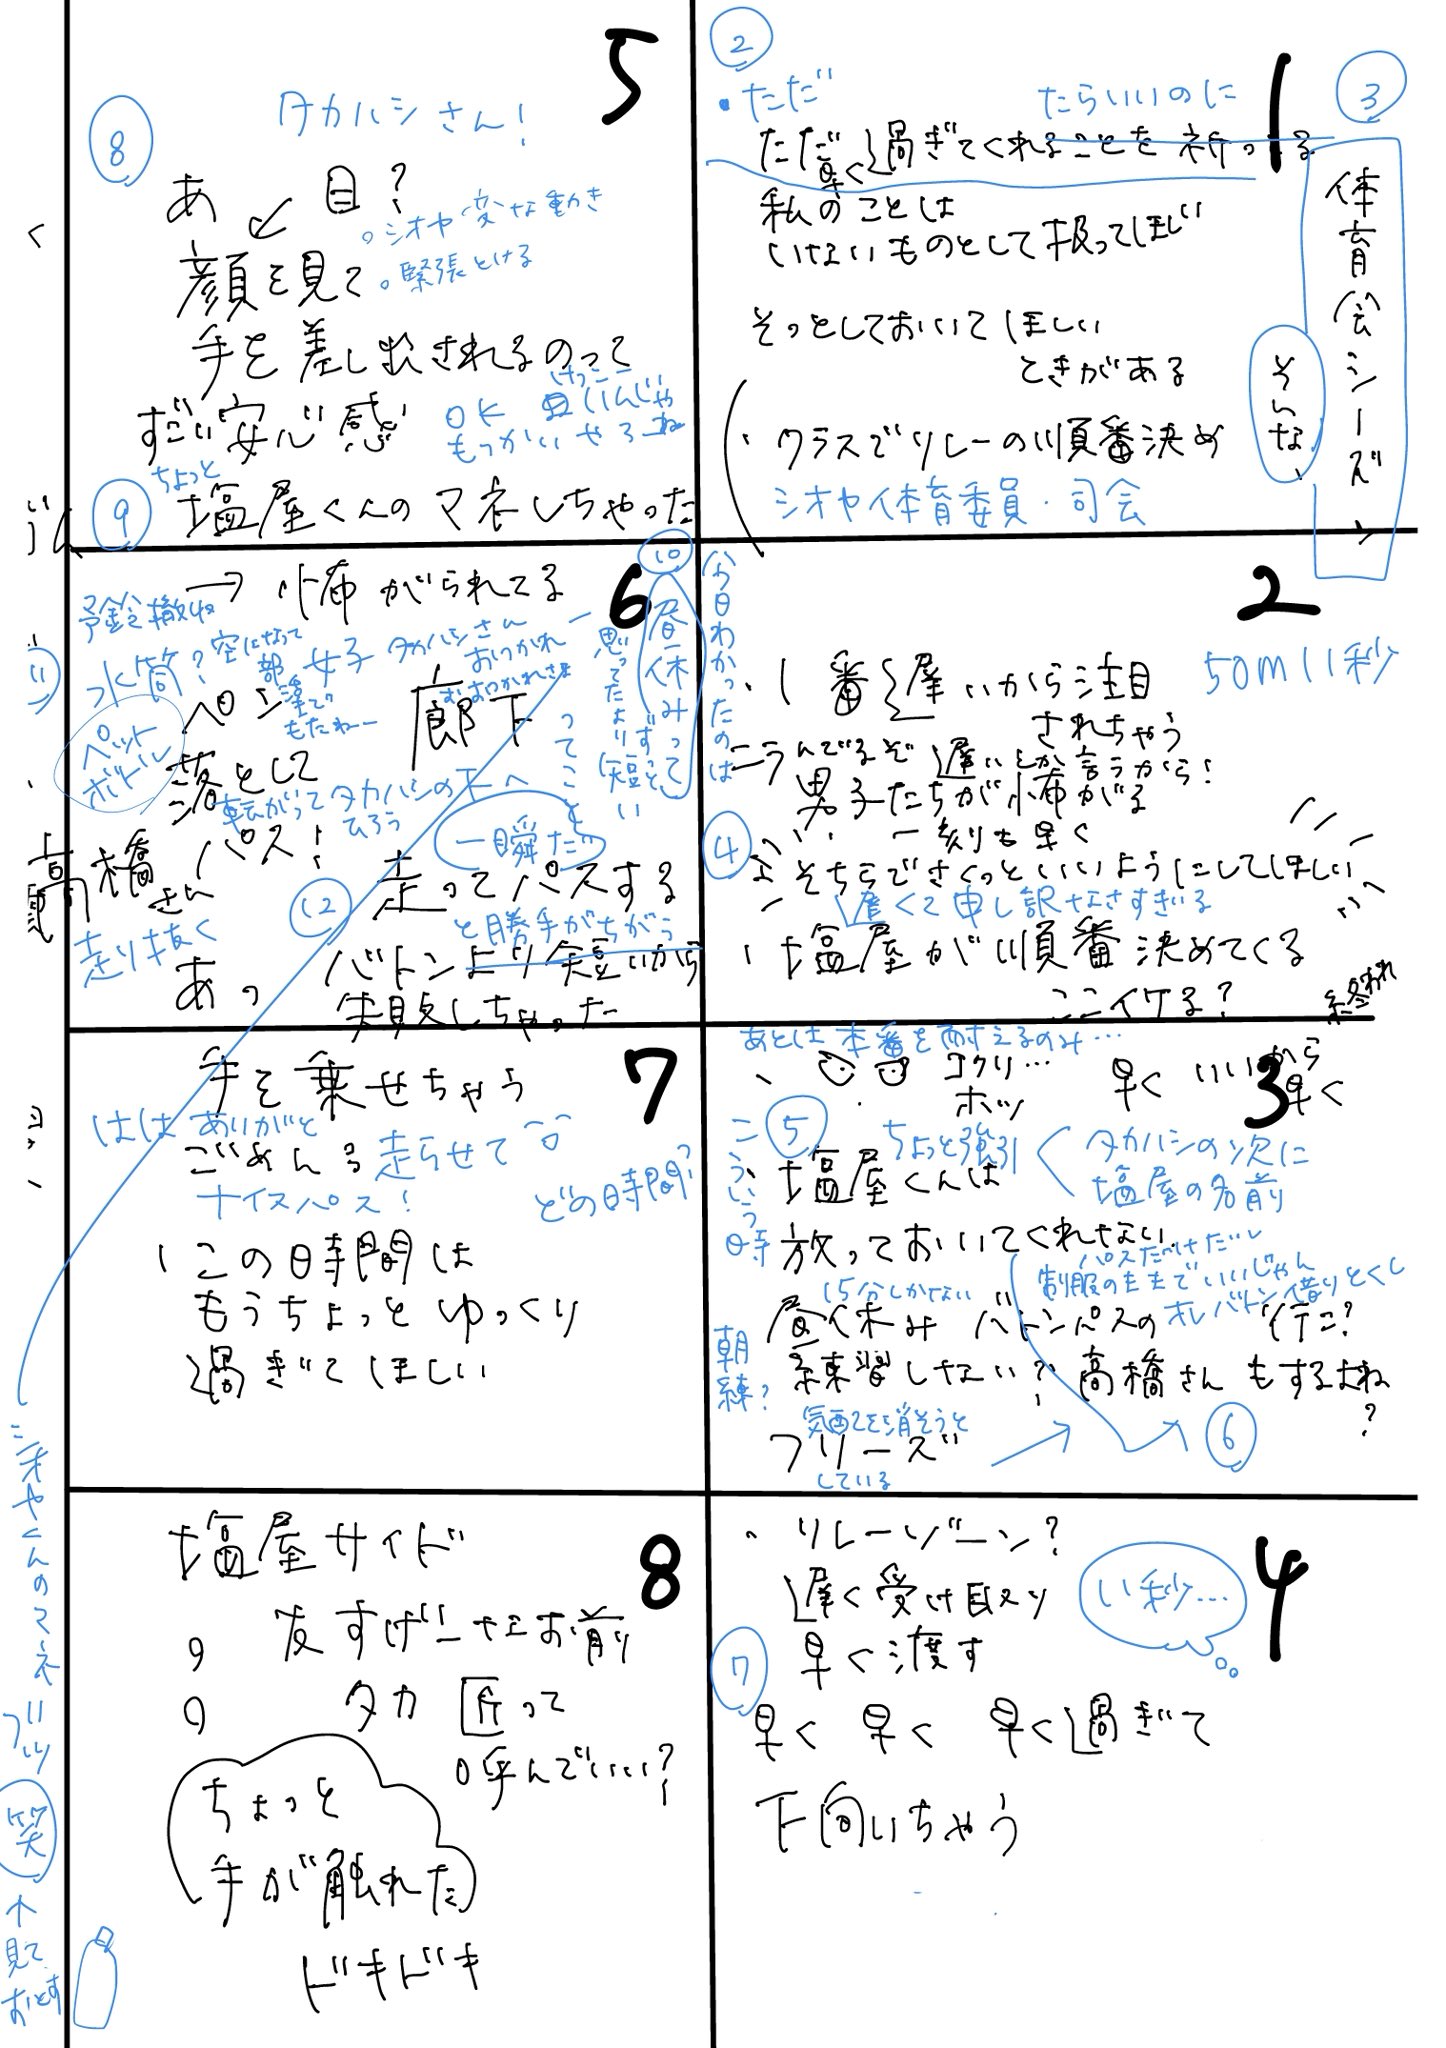 1
②
③
・ただ
たらいいのに
ただ早く過ぎてくれることを祈ってる
私のことは
いないものとして扱ってほしい
そっとしておいてほしい
ときがある
そんな、
体育会シーズン
・クラスでリレーの順番決め
シオヤ体育委員・司会
2
50m11秒
・1番遅いから注目
されちゃう
遅いとか言うから!
男子たちが怖がる
④
一刻も早く
そちらでさくっといいようにしてほしい
遅くて申し訳なさすぎる
・塩屋が順番決めてくる
ここイケる?
終われ
3
あとは本番を耐えるのみ…
コクリ…
ホッ
早く いいから
早く
⑤
こういう時
ちょっと強引
タカハシの次に
塩屋の名前
塩屋くんは
放っておいてくれない
パスだけだし
制服のままでいいじゃん
15分しかない
オレバトン借りとくし
昼休み バトンパスの 行こ?
練習しない? 高橋さんもするよね
?
朝練?
気配を消そうと
フリーズ
している
⑥
4
・リレーゾーン?
遅く受け取り
早く渡す
11秒…
⑦
早く 早く 早く過ぎて
下向いちゃう
5
⑧
タカハシさん!
あ 目?
。シオヤ変な動き
。緊張とける
顔を見て
手を差し出されるのって
すごい安心感
けっこー
OK 良いんじゃね
もっかいやろー
⑨
ちょっと
塩屋くんのマネしちゃった
6
→ 怖がられてる
⑩
今日わかったのは
昼休みって
思ってたよりずっと短い
ってこと
一瞬だ
予鈴撤収
水筒? 空になって
女子 タカハシさん
おつかれー
おおつかれさま
ペン
もたねー
ペットボトル
廊下
落として
転がってタカハシの下へ
ひろう
高橋さん
パス!
走り抜く
あっ
⑫
走ってパスする
と勝手がちがう
バトンより短いから
失敗しちゃった
7
手を乗せちゃう
はは ありがと
ごめんね 走らせて
ナイスパス!
どの時間?
・この時間は
もうちょっとゆっくり
過ぎてほしい
シオヤくんのマネ
笑
↑
見て
おとす
8
塩屋サイド
友 すげーなお前
タカ 匠って
呼んでいい?
ちょっと
手が触れた
ドキドキ